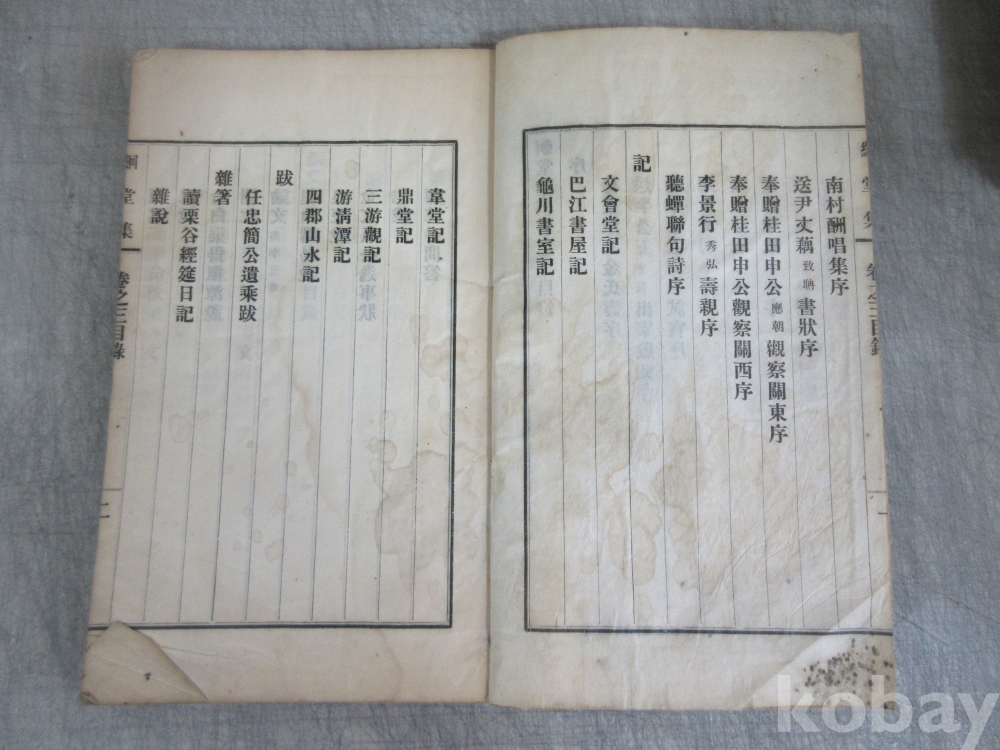 南村酬唱集序
送尹丈藕致聃書狀序
奉贈桂田申公應朝觀察關東序
奉贈桂田申公觀察關西序
李景行秀弘壽親序
聽蟬聯句詩序
記
文會堂記
巴江書屋記
龜川書室記
堂集 卷之三目錄 二
韋堂記
鼎堂記
三游觀記
游清潭記
四郡山水記
跋
任忠簡公遺乘跋
雜著
讀栗谷經筵日記
雜說
kobay